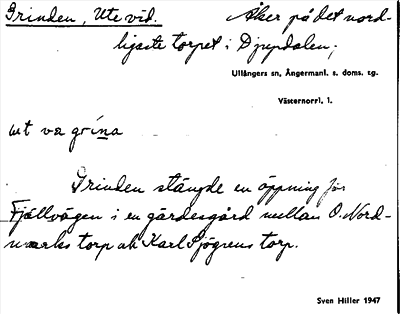 Grinden, Ute vid. Åker på det nord-
ligaste torpet i Djupdalen;
Ullångers sn, Ångermanl. s. doms. tg.
Västernorrl. l.
ut va grina
Grinden stängde en öppning för
Fjällvägen i en gärdesgård mellan O. Nord-
marks torp ah Karl Sjögrens torp.
Sven Hiller 1947